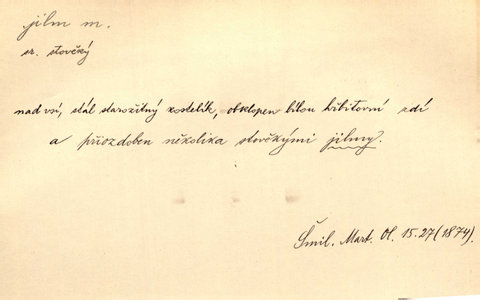 jilm m.
sr. stověký
nad vsí, stál starožitný kostelík, obklopen bílou hřbitovní zdí
a přiozdoben několika stověkými jilmy.
Šmil. Mart. Ol. 15.27 (1874).